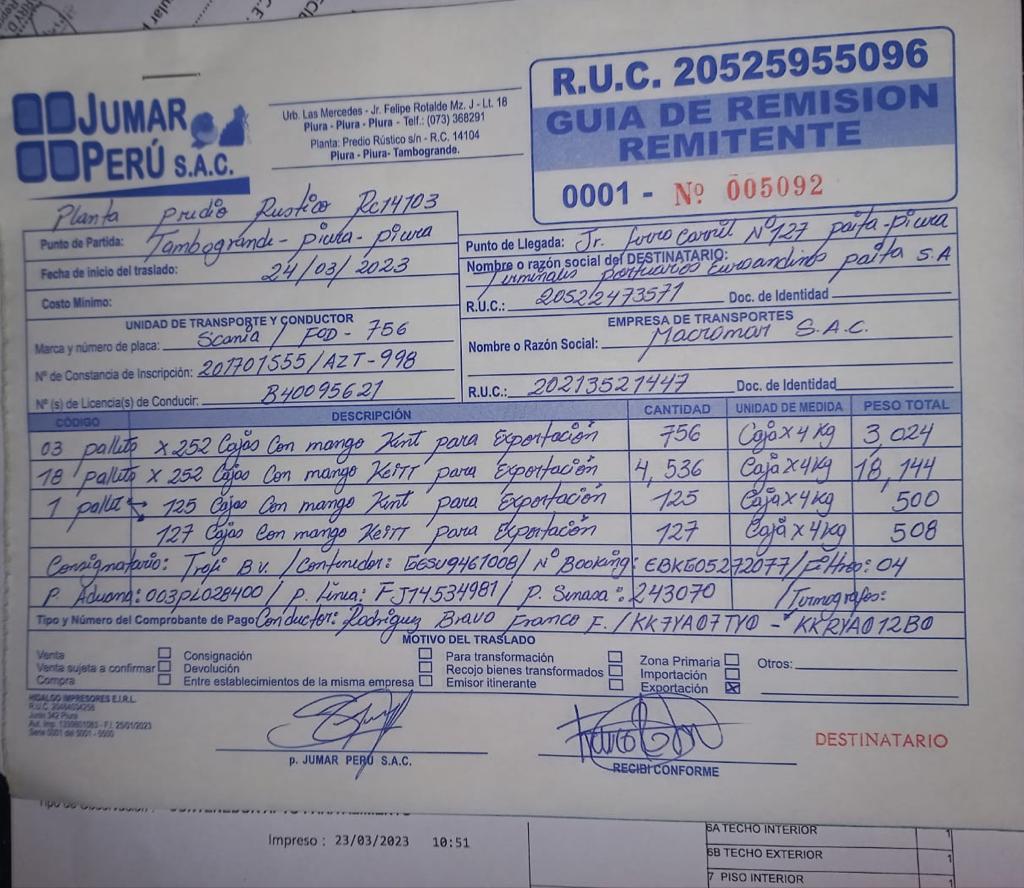 JUMAR
PERÚ S.A.C.
Urb. Las Mercedes - Jr. Felipe Rotalde Mz. J - Lt. 18
Piura - Piura - Piura - Telf.: (073) 368291
Planta: Predio Rústico s/n - R.C. 14104
Piura - Piura- Tambogrande.
R.U.C. 20525955096
GUIA DE REMISION
REMITENTE
0001 - Nº 005092
Planta Predio Rustico Rc14103
Punto de Partida: Tambogrande - piura - piura
Fecha de inicio del traslado: 24/03/2023
Costo Mínimo:
Punto de Llegada: Jr. ferro Carril Nº 127 paita-piura
Nombre o razón social del DESTINATARIO:
Terminales portuarios Euroandinos paita S.A
R.U.C.: 20522473571 Doc. de Identidad
UNIDAD DE TRANSPORTE Y CONDUCTOR
Marca y número de placa: Scania / - 756
Nº de Constancia de Inscripción: 201701555/AZT-998
Nº (s) de Licencia(s) de Conducir: B40095621
EMPRESA DE TRANSPORTES
Nombre o Razón Social: Macromar S.A.C.
R.U.C.: 20213521447 Doc. de Identidad
CÓDIGO DESCRIPCIÓN CANTIDAD UNIDAD DE MEDIDA PESO TOTAL
03 pallets x 252 Cajas Con mango Kent para Exportación 756 Caja x 4 kg 3,024
18 pallets x 252 Cajas Con mango Keitt para Exportación 4,536 Caja x 4kg 18,144
1 pallet 125 Cajas Con mango Kent para Exportación 125 Caja x 4kg 500
127 Cajas Con mango Keitt para Exportación 127 Caja x 4kg 508
Consignatario: B.V. / Contenedor: / Nº Booking: EBKG05272077 / Filtros: 04
P. Aduana: / p. Linea: FJ14534981 / P. Senasa: 243070 / Termografos:
Tipo y Número del Comprobante de Pago Conductor: Rodriguez Bravo Franco F. / KK7YA07TY0 - KKRYA012B0
MOTIVO DEL TRASLADO
Venta
Venta sujeta a confirmar
Compra
Consignación
Devolución
Entre establecimientos de la misma empresa
Para transformación
Recojo bienes transformados
Emisor itinerante
Zona Primaria
Importación
Exportación
Otros:
HIDALGO IMPRESORES E.I.R.L.
Junín 342 Piura
Serie 0001 del 5001 - 5500
p. JUMAR PERÚ S.A.C.
RECIBI CONFORME
DESTINATARIO
Impreso : 23/03/2023 10:51
6A TECHO INTERIOR 1
6B TECHO EXTERIOR 1
7 PISO INTERIOR 1